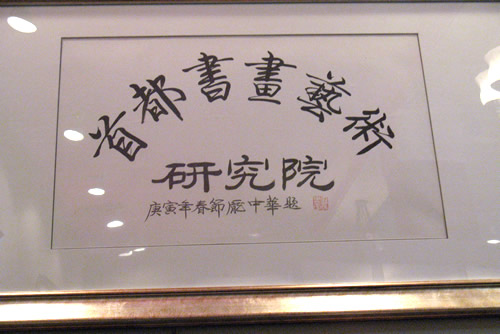 首都書畫藝術
研究院
庚寅年春節龐中華題